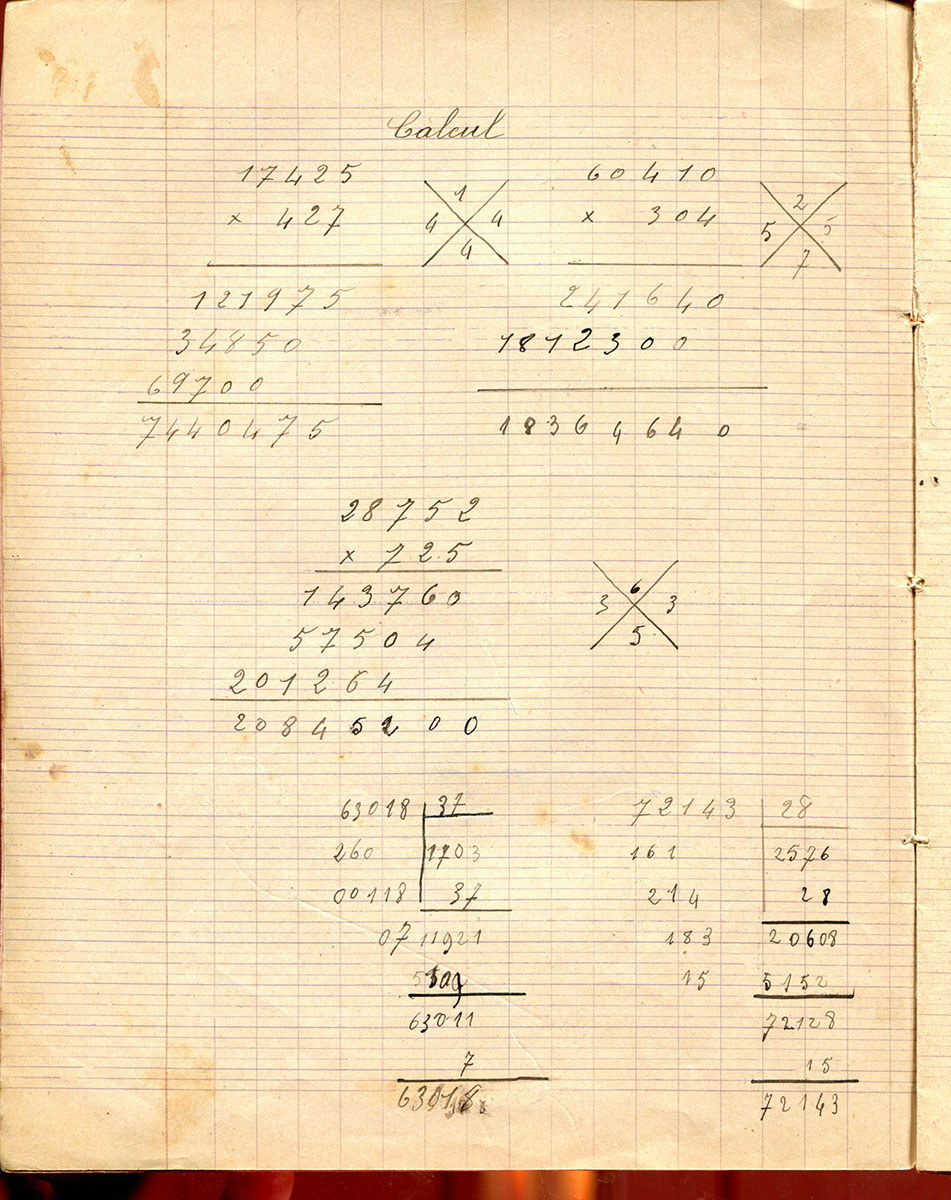 Calcul
17425
× 427
1
4 4
4
121975
34850
69700
7440475
60410
× 304
2
5 5
7
241640
1812300
18364640
28752
× 725
143760
57504
201264
20845200
6
3 3
5
63018 37
260 1703
00118 37
07 11921
63011
7
63018
72143 28
161 2576
214 28
183 20608
15 5152
72128
15
72143